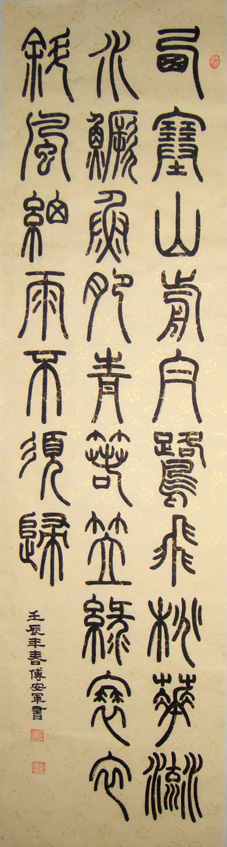 西塞山前白鷺飛桃華流
水鱖魚肥青箬笠綠蓑衣
斜風細雨不須歸
壬辰年春傅安軍書